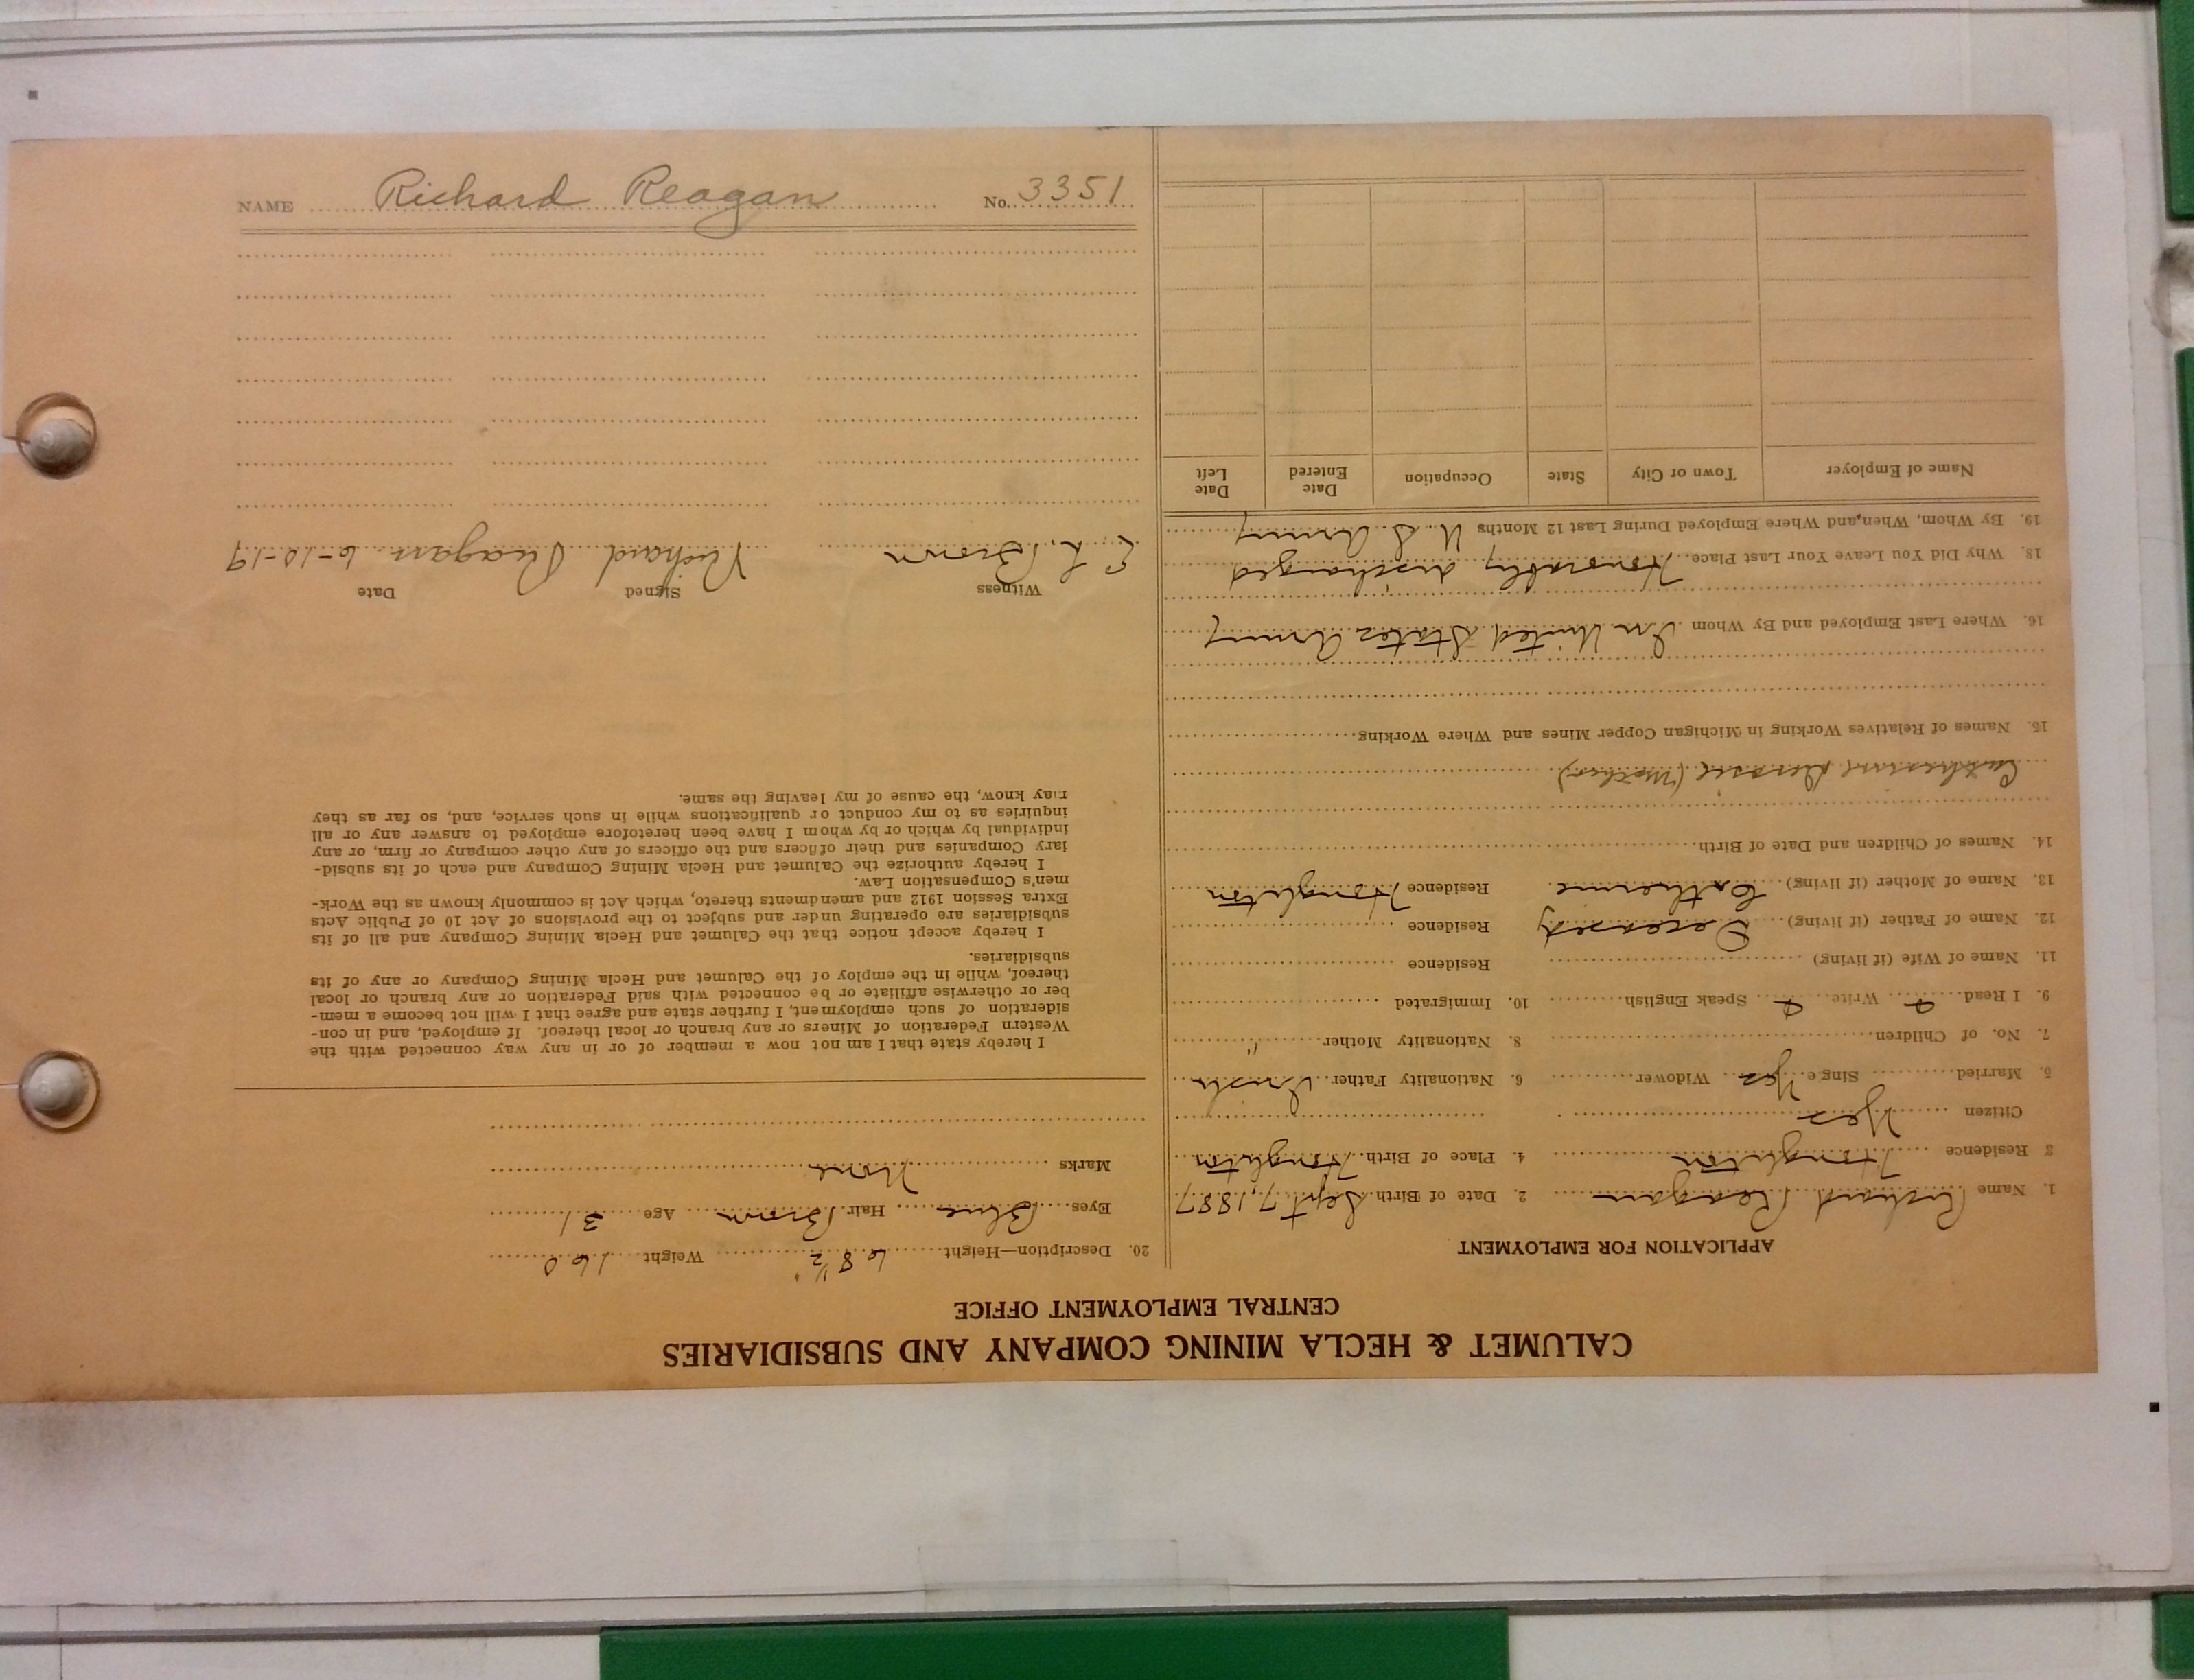 CALUMET & HECLA MINING COMPANY AND SUBSIDIARIES
CENTRAL EMPLOYMENT OFFICE
APPLICATION FOR EMPLOYMENT
1. Name Richard Reagan 2. Date of Birth Sept 7, 1887
3 Residence Houghton 4. Place of Birth Houghton
Citizen Yes
5. Married Single Yes Widower 6. Nationality Father Irish
7. No. of Children 8. Nationality Mother "
9. I Read Write Speak English 10. Immigrated
11. Name of Wife (if living) Residence
12. Name of Father (if living) Deceased Residence
13. Name of Mother (if living) Catherine Residence Houghton
14. Names of Children and Date of Birth
(Mother)
15. Names of Relatives Working in Michigan Copper Mines and Where Working
16. Where Last Employed and By Whom In United States Army
18. Why Did You Leave Your Last Place Honorably discharged
19. By Whom, When, and Where Employed During Last 12 Months U.S. Army
Name of Employer Town or City State Occupation Date Entered Date Left
20. Description—Height 68 1/2" Weight 160
Eyes Blue Hair Brown Age 31
Marks None
I hereby state that I am not now a member of or in any way connected with the
Western Federation of Miners or any branch or local thereof. If employed, and in con-
sideration of such employment, I further state and agree that I will not become a mem-
ber or otherwise affiliate or be connected with said Federation or any branch or local
thereof, while in the employ of the Calumet and Hecla Mining Company or any of its
subsidiaries.
I hereby accept notice that the Calumet and Hecla Mining Company and all of its
subsidiaries are operating under and subject to the provisions of Act 10 of Public Acts
Extra Session 1912 and amendments thereto, which Act is commonly known as the Work-
men's Compensation Law.
I hereby authorize the Calumet and Hecla Mining Company and each of its subsid-
iary Companies and their officers and the officers of any other company or firm, or any
individual by which or by whom I have been heretofore employed to answer any or all
inquiries as to my conduct or qualifications while in such service, and, so far as they
may know, the cause of my leaving the same.
Witness Signed Date
E. L. Brown Richard Reagan 6-10-19
NAME Richard Reagan No. 3351